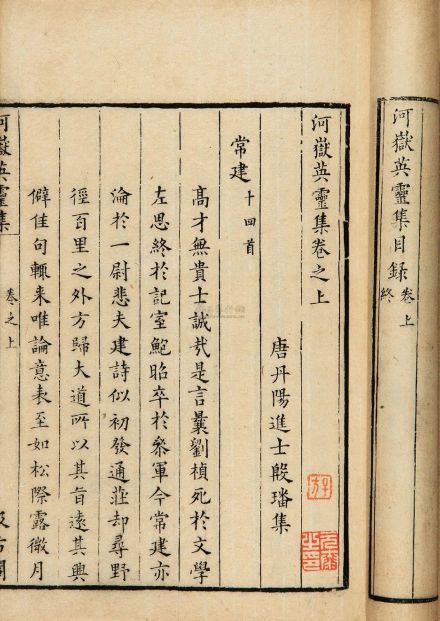 河嶽英靈集目錄卷上終
河嶽英靈集卷之上
唐丹陽進士殷璠集
常建十四首
高才無貴士誠㢤是言曩劉楨死於文學
左思終於記室鮑昭卒於參軍今常建亦
淪於一尉悲夫建詩似初發通莊却尋野
徑百里之外方歸大道所以其旨遠其興
僻佳句輙来唯論意表至如松際露微月
河嶽英靈集
卷之上